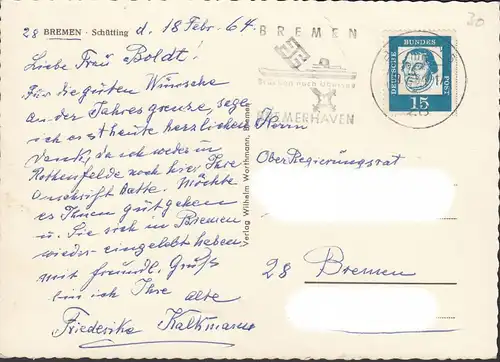 28 BREMEN - Schütting d. 18 Febr. 64.
Liebe Frau Boldt!
Für die guten Wünsche
an der Jahresgrenze, sage
ich erst heute herzlichen
Dank, da ich weder in
Rothenfelde noch hier, Ihre
Anschrift hatte. Möchte
es Ihnen gut gehen
u. Sie sich in Bremen
wieder eingelebt haben,
mit freundl. Gruß
bin ich Ihre alte
Friederike Kalkmann
Verlag Wilhelm Worthmann, Bremen
30
BREMEN
Brücken nach Übersee
BREMERHAVEN
DEUTSCHE BUNDESPOST
15
Herrn
Ober Regierungsrat
28 Bremen